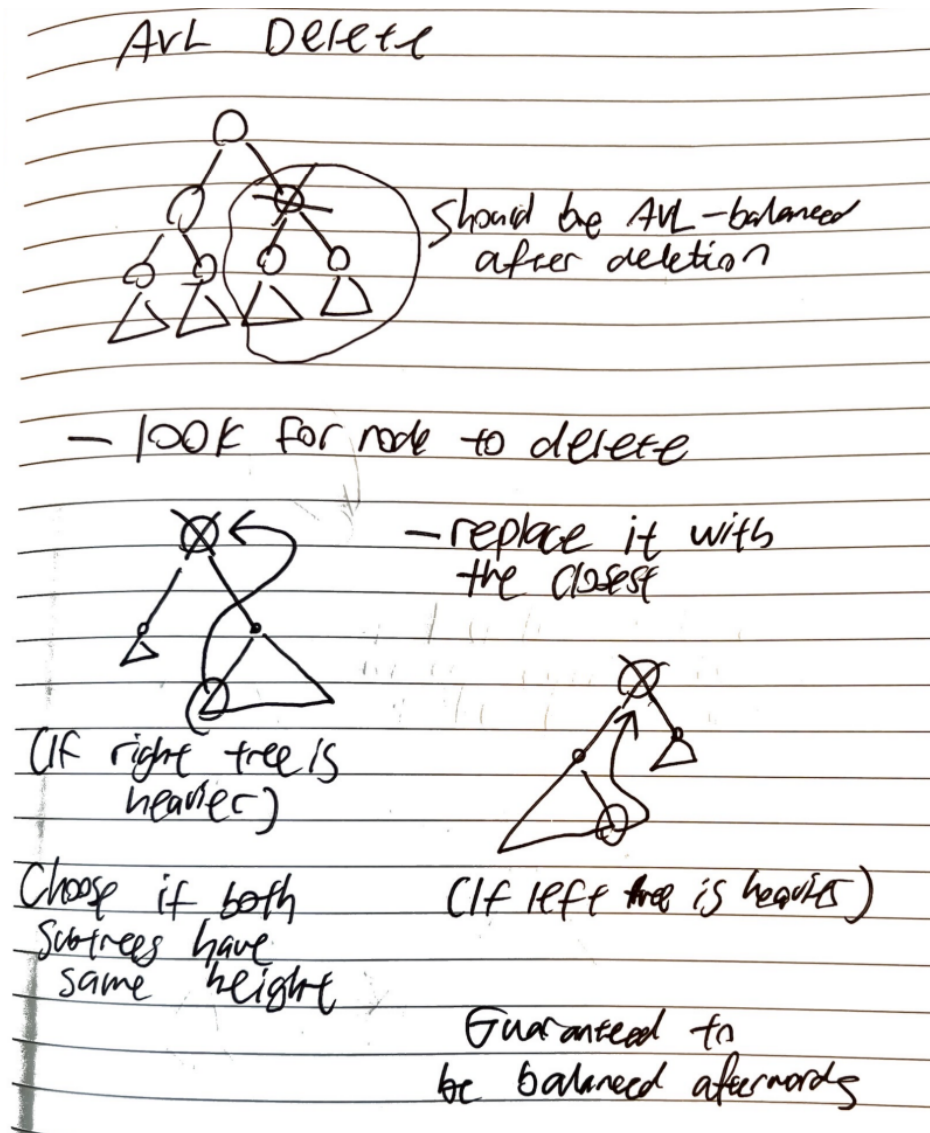 AVL Delete
Should be AVL-balanced
after deletion
- look for node to delete
- replace it with
the closest
(If right tree is
heavier)
(If left tree is heavier)
Choose if both
subtrees have
same height
Guaranteed to
be balanced afterwards